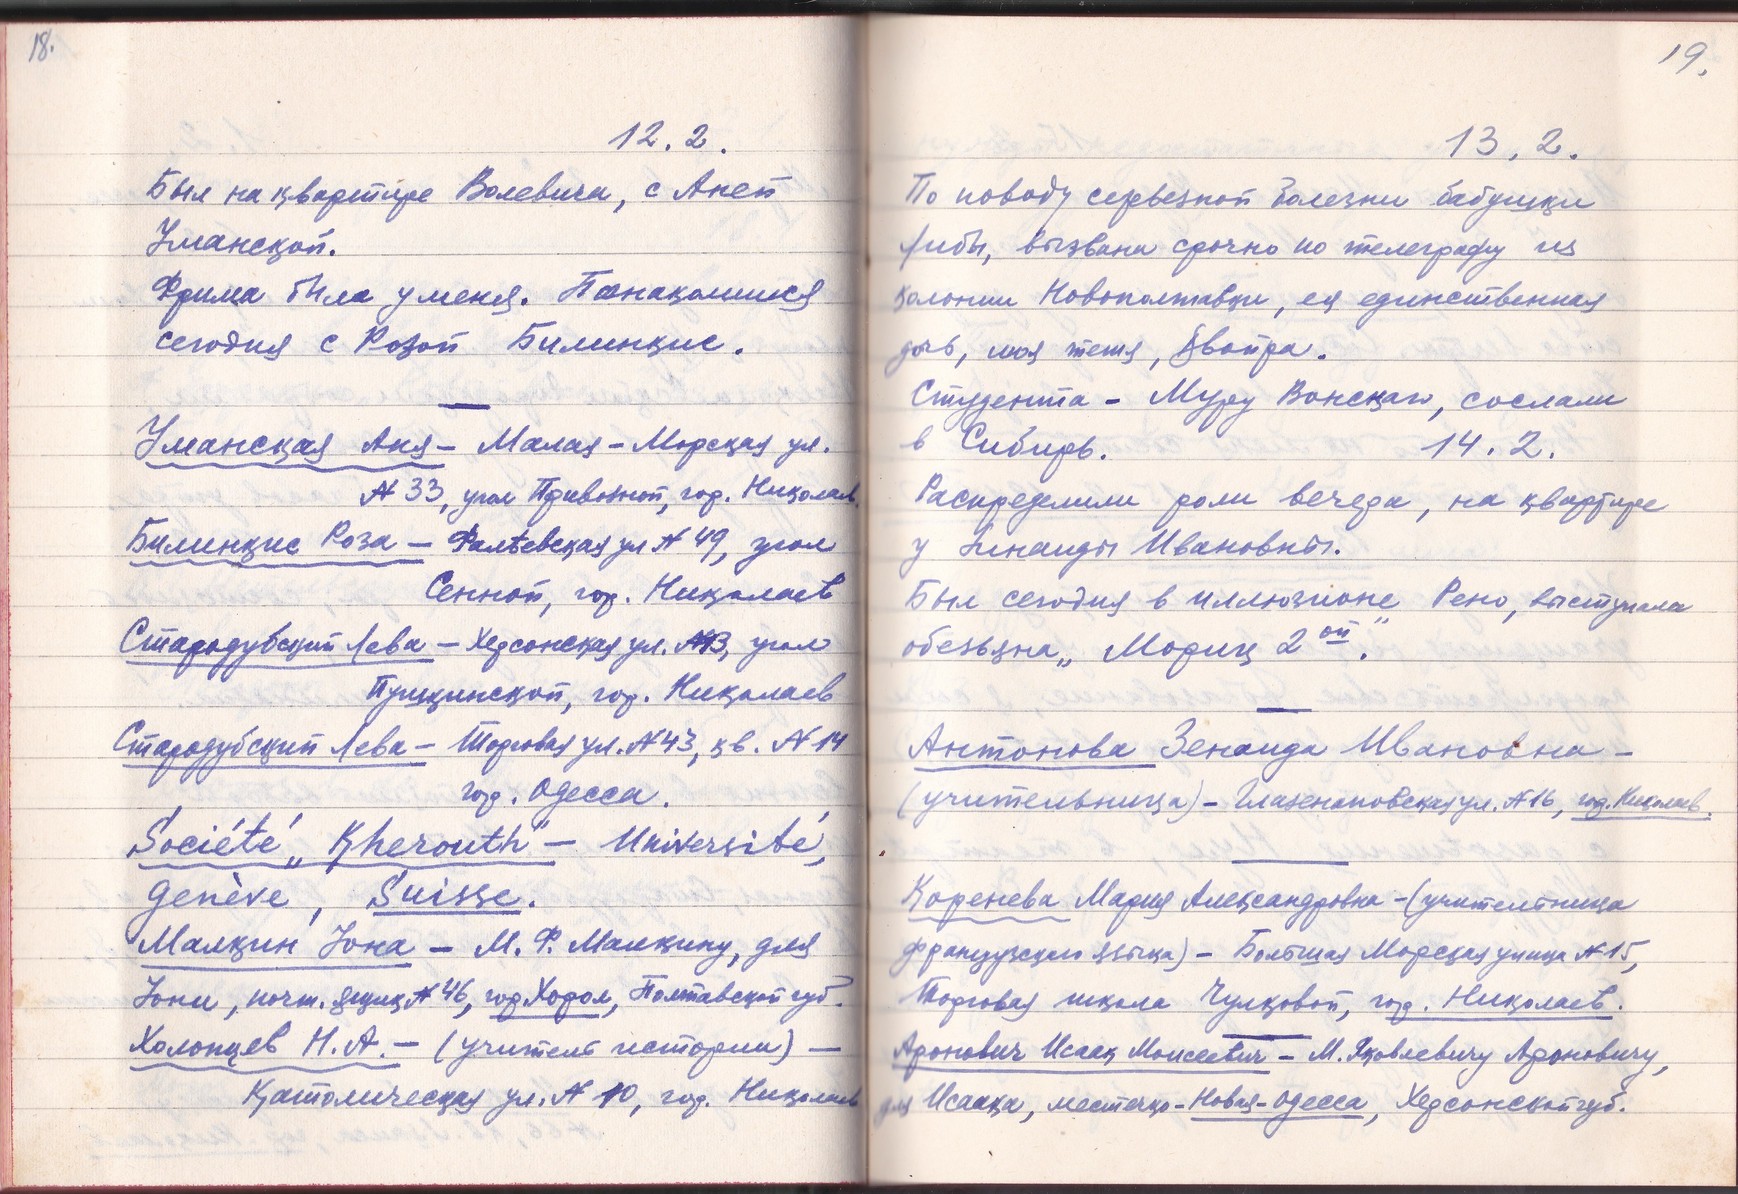 18.
12.2.
Был на квартире Волевича, с Анет
Уманской.
Фрима была у меня. Познакомился
сегодня с Розой Билинкис.
Уманская Аня – Малая-Морская ул.
№ 33, угол Привозной, гор. Николаев.
Билинкис Роза – Фалѣевская ул № 49, угол
Сенной, гор. Николаев
Стародубский Лева – Херсонская ул. №, угол
Пушкинской, гор. Николаев
Стародубский Лева – Торговая ул. № 43, кв. № 14
гор. Одесса.
Société „Kherouth" – Université,
Genève, Suisse.
Малкин Іона – М. Ф. Малкину, для
Іоны, почт. ящик № 46, гор Хорол, Полтавской губ.
Холопцев Н. А. – (учитель истории) –
Католическая ул. № 10, гор. Николаев
19.
13.2.
По поводу серьезной болезни бабушки
вызвана срочно по телеграфу из
колонии Новополтавки, ея единственная
дочь, моя тетя, Двойра.
Студента – Муру Вонскаго, сослали
в Сибирь. 14.2.
Распределили роли вечера, на квартире
у Зинаиды Ивановны.
Был сегодня в иллюзионе „Рено, выступала
обезьяна „Мориц 2ой".
Антонова Зенаида Ивановна –
(учительница) – Глазенаповская ул. № 16, гор. Николаев.
Коренева Мария Александровна – (учительница
французскаго языка) – Большая Морская улица № 15,
Торговая школа Чулковой, гор. Николаев.
Аронович Исаак Моисеевич – М. Яковлевичу Ароновичу,
для Исаака, местечко – Новая-Одесса, Херсонской губ.